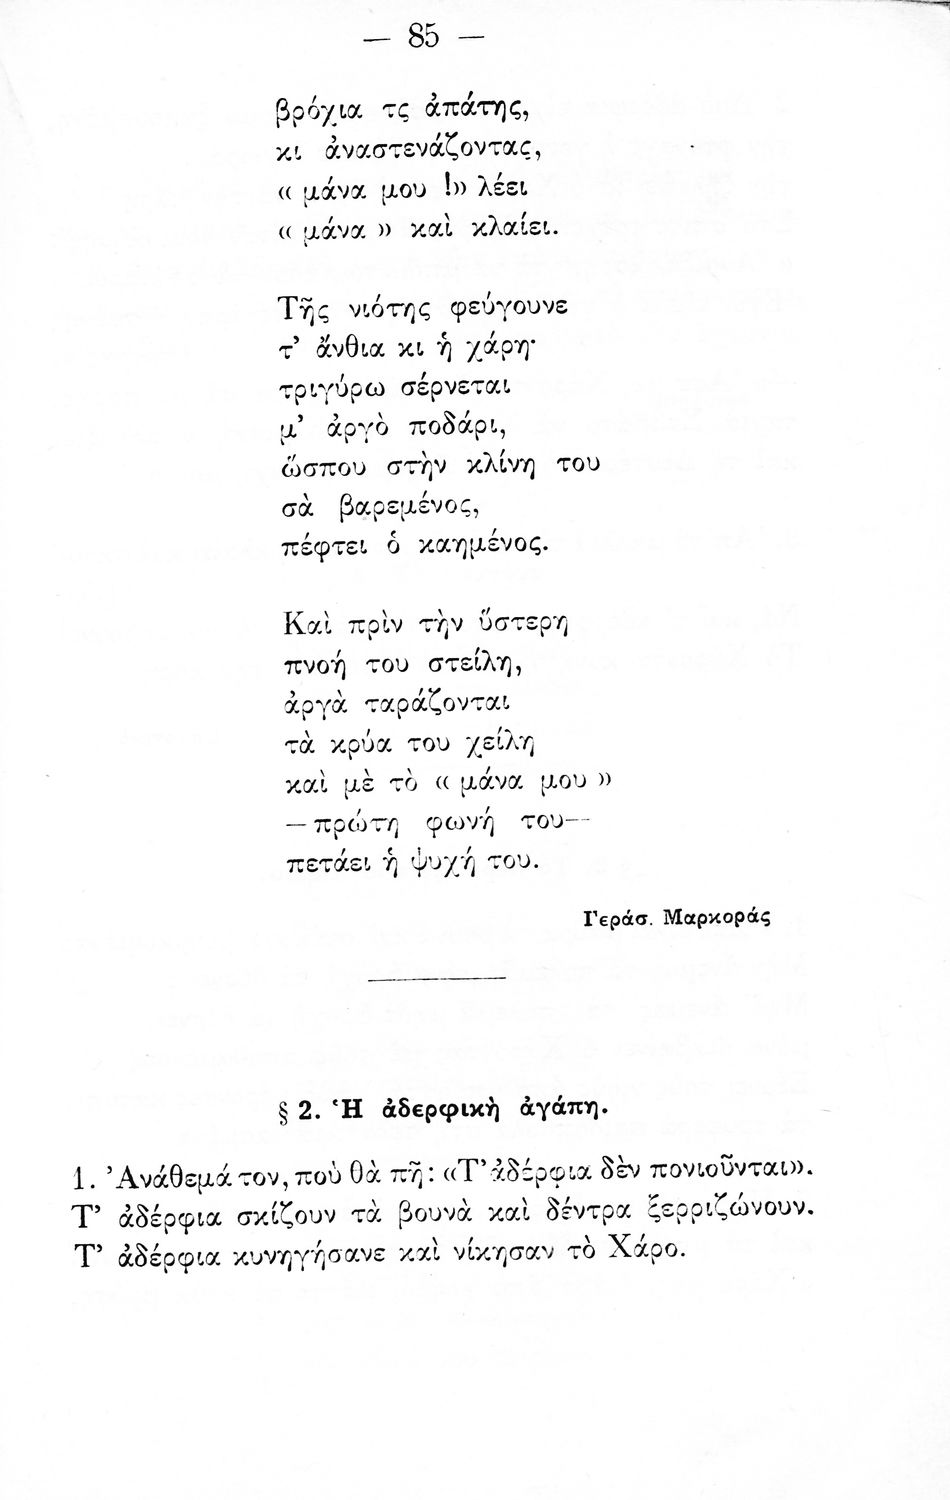 — 85 —
βρόχια τς ἀπάτης,
κι ἀναστενάζοντας,
« μάνα μου !» λέει
« μάνα » καὶ κλαίει.
Τῆς νιότης φεύγουνε
τ’ ἄνθια κι ἡ χάρη·
τριγύρω σέρνεται
μ’ ἀργὸ ποδάρι,
ὥσπου στὴν κλίνη του
σὰ βαρεμένος,
πέφτει ὁ καημένος.
Καὶ πρὶν τὴν ὕστερη
πνοή του στείλη,
ἀργὰ ταράζονται
τὰ κρύα του χείλη
καὶ μὲ τὸ « μάνα μου »
— πρώτη φωνή του —
πετάει ἡ ψυχή του.
Γεράσ. Μαρκοράς
§ 2. Ἡ ἀδερφικὴ ἀγάπη.
1. Ἀνάθεμά τον, ποὺ θὰ πῆ: «Τ’ ἀδέρφια δὲν πονιοῦνται».
Τ’ ἀδέρφια σκίζουν τὰ βουνὰ καὶ δέντρα ξερριζώνουν.
Τ’ ἀδέρφια κυνηγήσανε καὶ νίκησαν τὸ Χάρο.